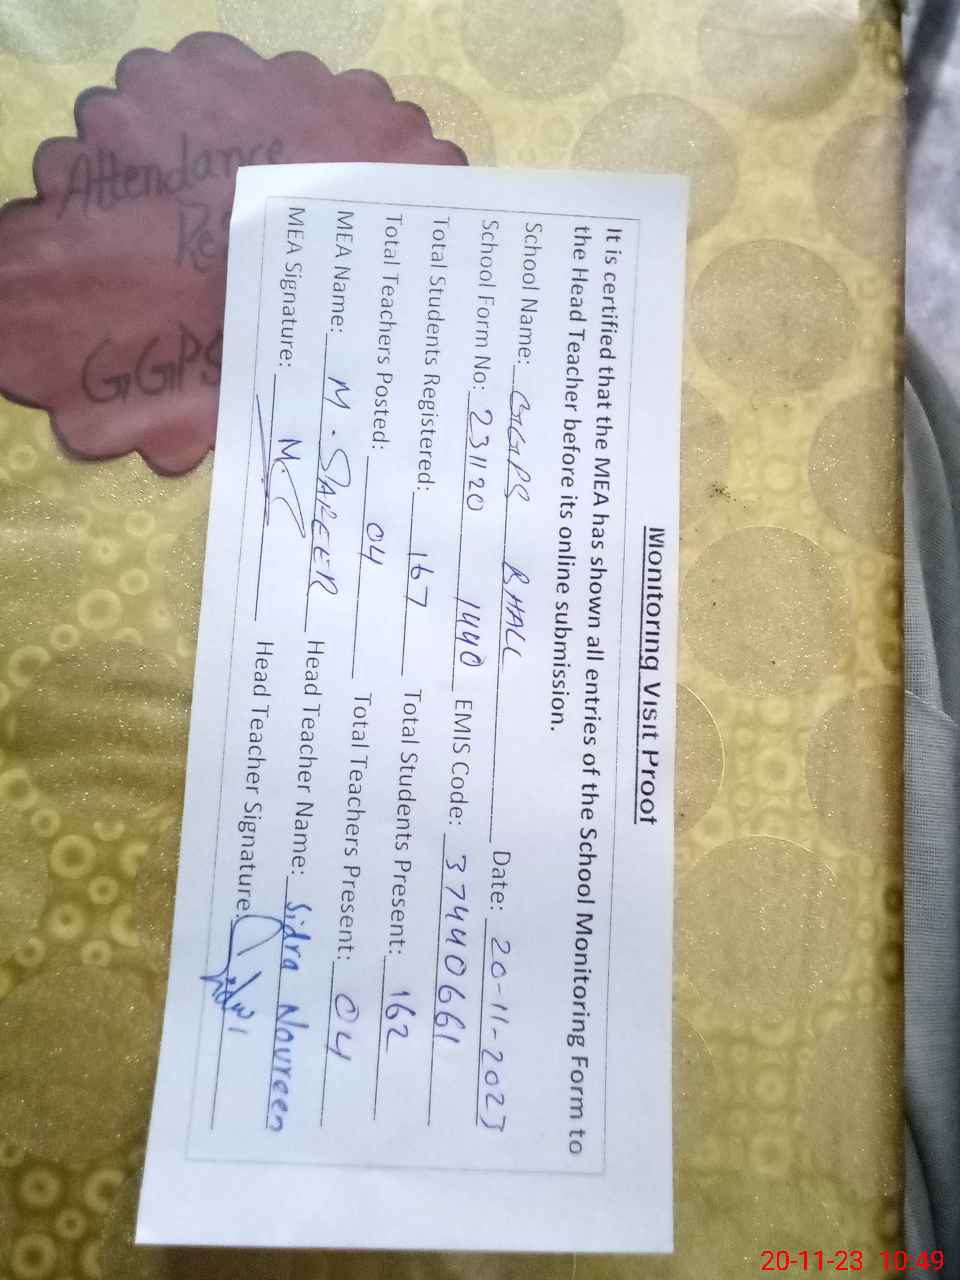 Monitoring Visit Proof
It is certified that the MEA has shown all entries of the School Monitoring Form to
the Head Teacher before its online submission.
School Name: GGPS BHALL Date: 20-11-2023
School Form No: 231120 1440 EMIS Code: 37440661
Total Students Registered: 167 Total Students Present: 162
Total Teachers Posted: 04 Total Teachers Present: 04
MEA Name: M. Head Teacher Name: Sidra Noureen
MEA Signature: Head Teacher Signature:
Attendance
GGPS
20-11-23 10:49